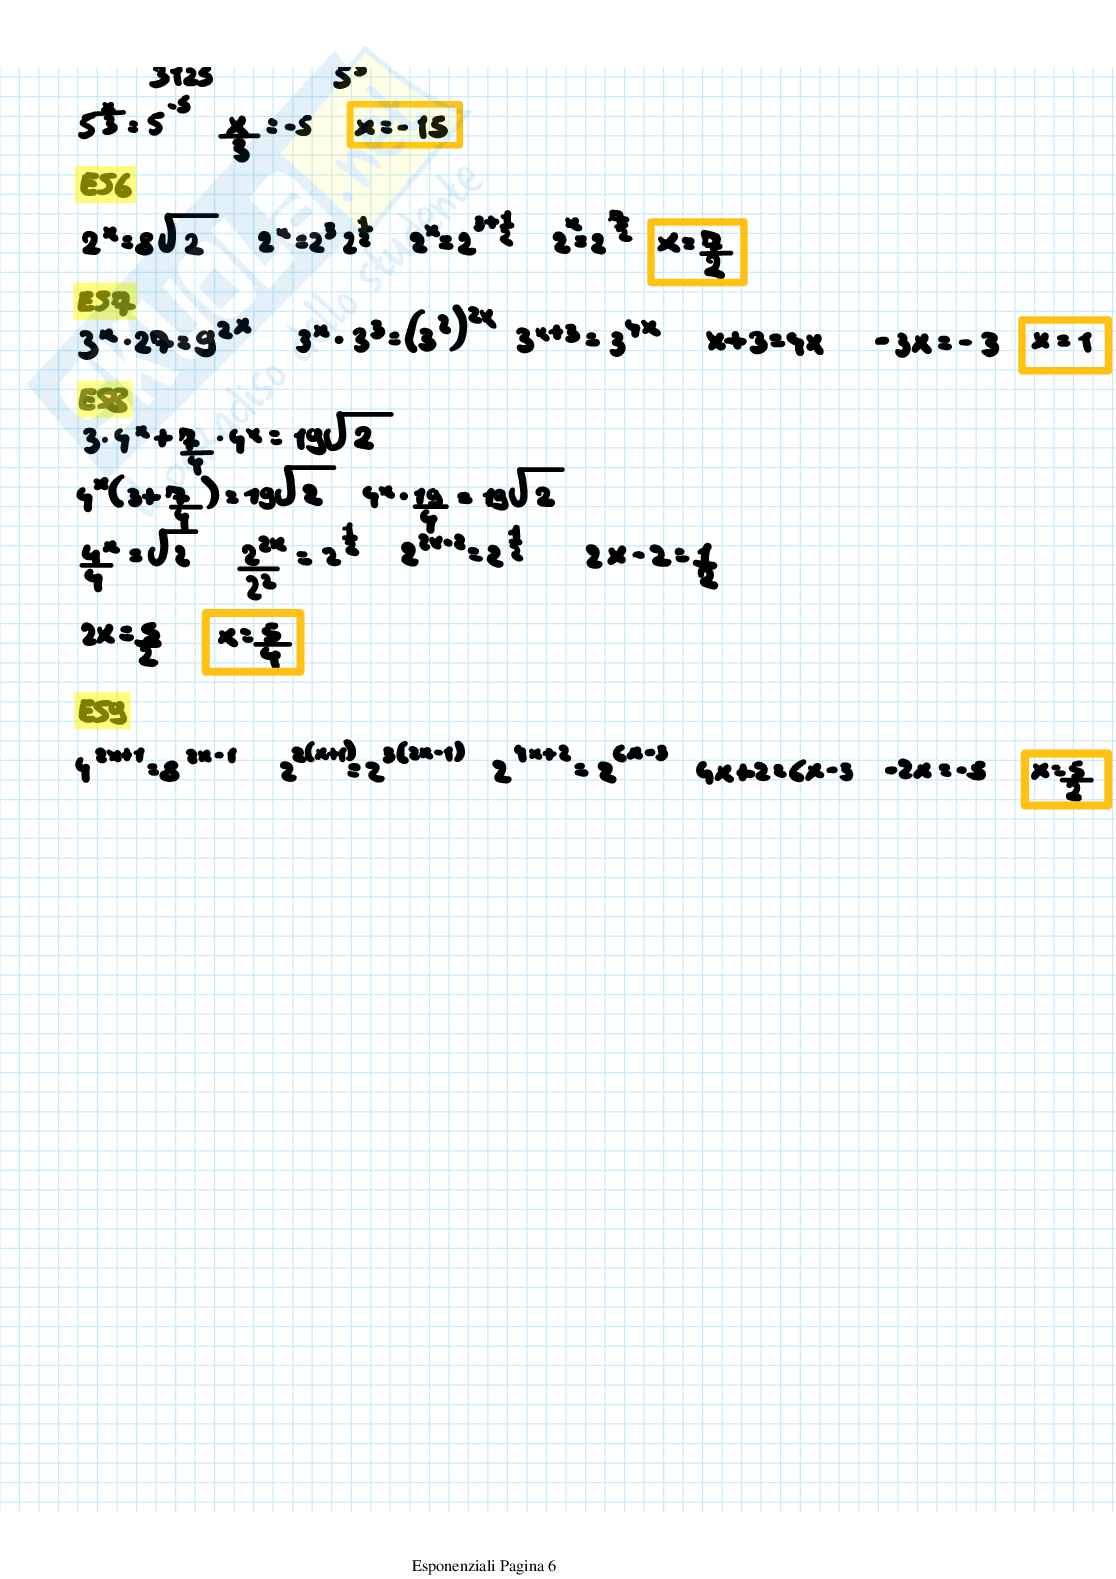 3125 5⁵
5^(x/3) = 5^(-5) x/3 = -5 x = -15
ES6
2^x = 8√2 2^x = 2^3 2^(1/2) 2^x = 2^(3+1/2) 2^x = 2^(7/2) x = 7/2
ES7
3^x · 27 = 9^(2x) 3^x · 3^3 = (3^2)^(2x) 3^(x+3) = 3^(4x) x+3=4x -3x=-3 x=1
ES8
3·4^x + 7/4 · 4^x = 19√2
4^x(3+7/4) = 19√2 4^x · 19/4 = 19√2
4^x/4 = √2 2^(2x)/2^2 = 2^(1/2) 2^(2x-2) = 2^(1/2) 2x-2 = 1/2
2x = 5/2 x = 5/4
ES9
4^(2x+1) = 8^(2x-1) 2^(2(x+1)) = 2^(3(2x-1)) 2^(4x+2) = 2^(6x-3) 4x+2=6x-3 -2x=-5 x=5/2
Esponenziali Pagina 6